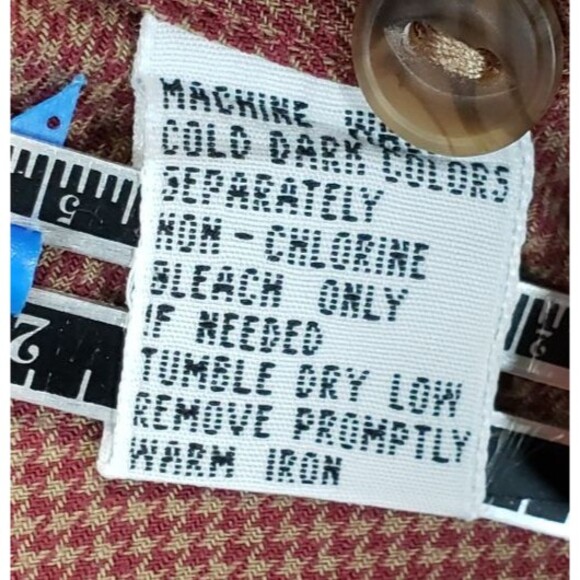 MACHINE
COLD DARK COLORS
SEPARATELY
NON-CHLORINE
BLEACH ONLY
IF NEEDED
TUMBLE DRY LOW
REMOVE PROMPTLY
WARM IRON
5
2